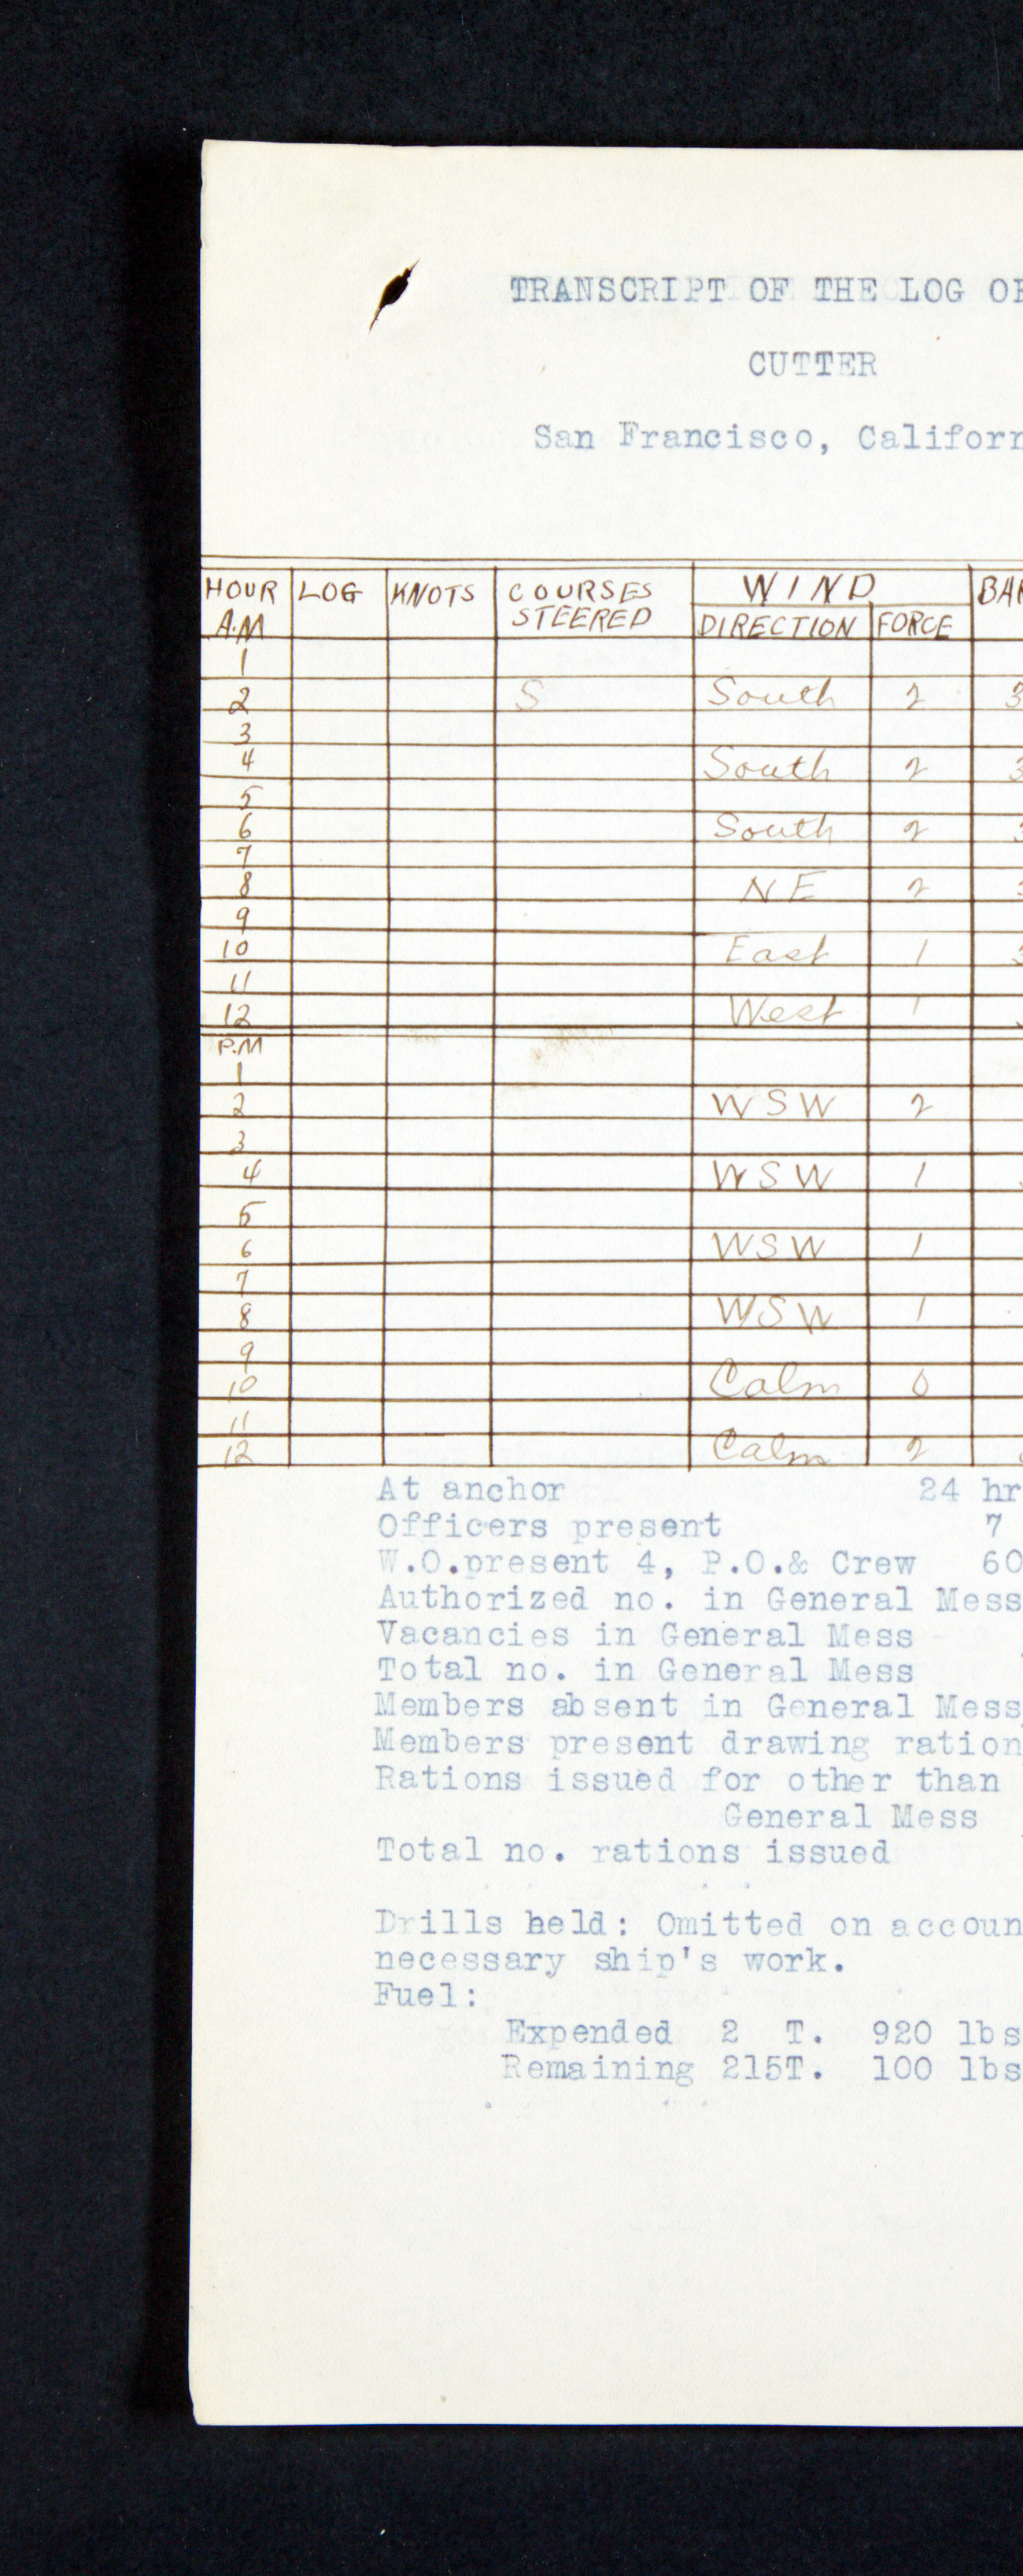 TRANSCRIPT OF THE LOG OF
CUTTER
San Francisco, Californ
HOUR LOG KNOTS COURSES STEERED WIND BAR
A.M DIRECTION FORCE
1
2 S South 2 3
3
4 South 2 3
5
6 South 2 3
7
8 NE 2 3
9
10 East 1 3
11
12 West 1
P.M
1
2 WSW 2
3
4 WSW 1
5
6 WSW 1
7
8 WSW 1
9
10 Calm 0
11
12 Calm 2
At anchor 24 hr
Officers present 7
W.O.present 4, P.O.& Crew 60
Authorized no. in General Mess
Vacancies in General Mess
Total no. in General Mess
Members absent in General Mess
Members present drawing ration
Rations issued for other than
General Mess
Total no. rations issued
Drills held: Omitted on accoun
necessary ship's work.
Fuel:
Expended 2 T. 920 lbs
Remaining 215T. 100 lbs